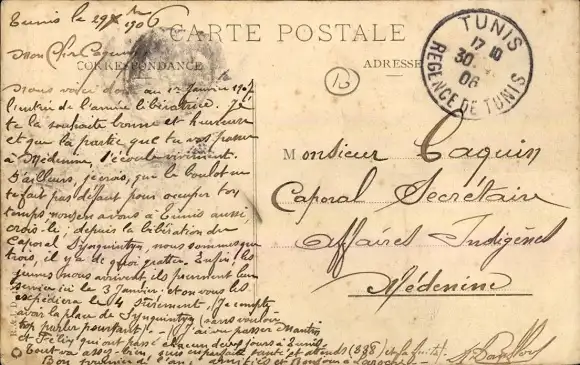 Tunis le 29 Xbre 1906
CARTE POSTALE
Mon Cher Caquin
CORRESPONDANCE
ADRESSE
TUNIS
17 10
30
06
REGENCE DE TUNIS
10
Nous voici donc au 1er Janvier 1907
l'entrée de l'année libératrice. Je
te la souhaite bonne et heureuse
et que la partie que tu vas passer
à Médenine, s'écoule vivement.
D'ailleurs, je crois, que le boulot ne
te fait pas défaut pour occuper ton
temps nous en avons à Tunis aussi
crois-le; depuis la libération du
Caporal nous sommes que
trois, il y a de quoi gratter. Enfin! les
jeunes nous arrivent ils prennent leur
service ici le 3 Janvier et on vous les
expédiera le 4 sûrement. Je compte
avoir la place de (sans vouloir
trop parler pourtant)
et Félix qui ont passé chacun deux jours à Tunis.
Tout va assez bien, suis en parfaite santé et attends (898) et la
Monsieur Caquin
Caporal Secrétaire
Affaires Indigènes
Médenine